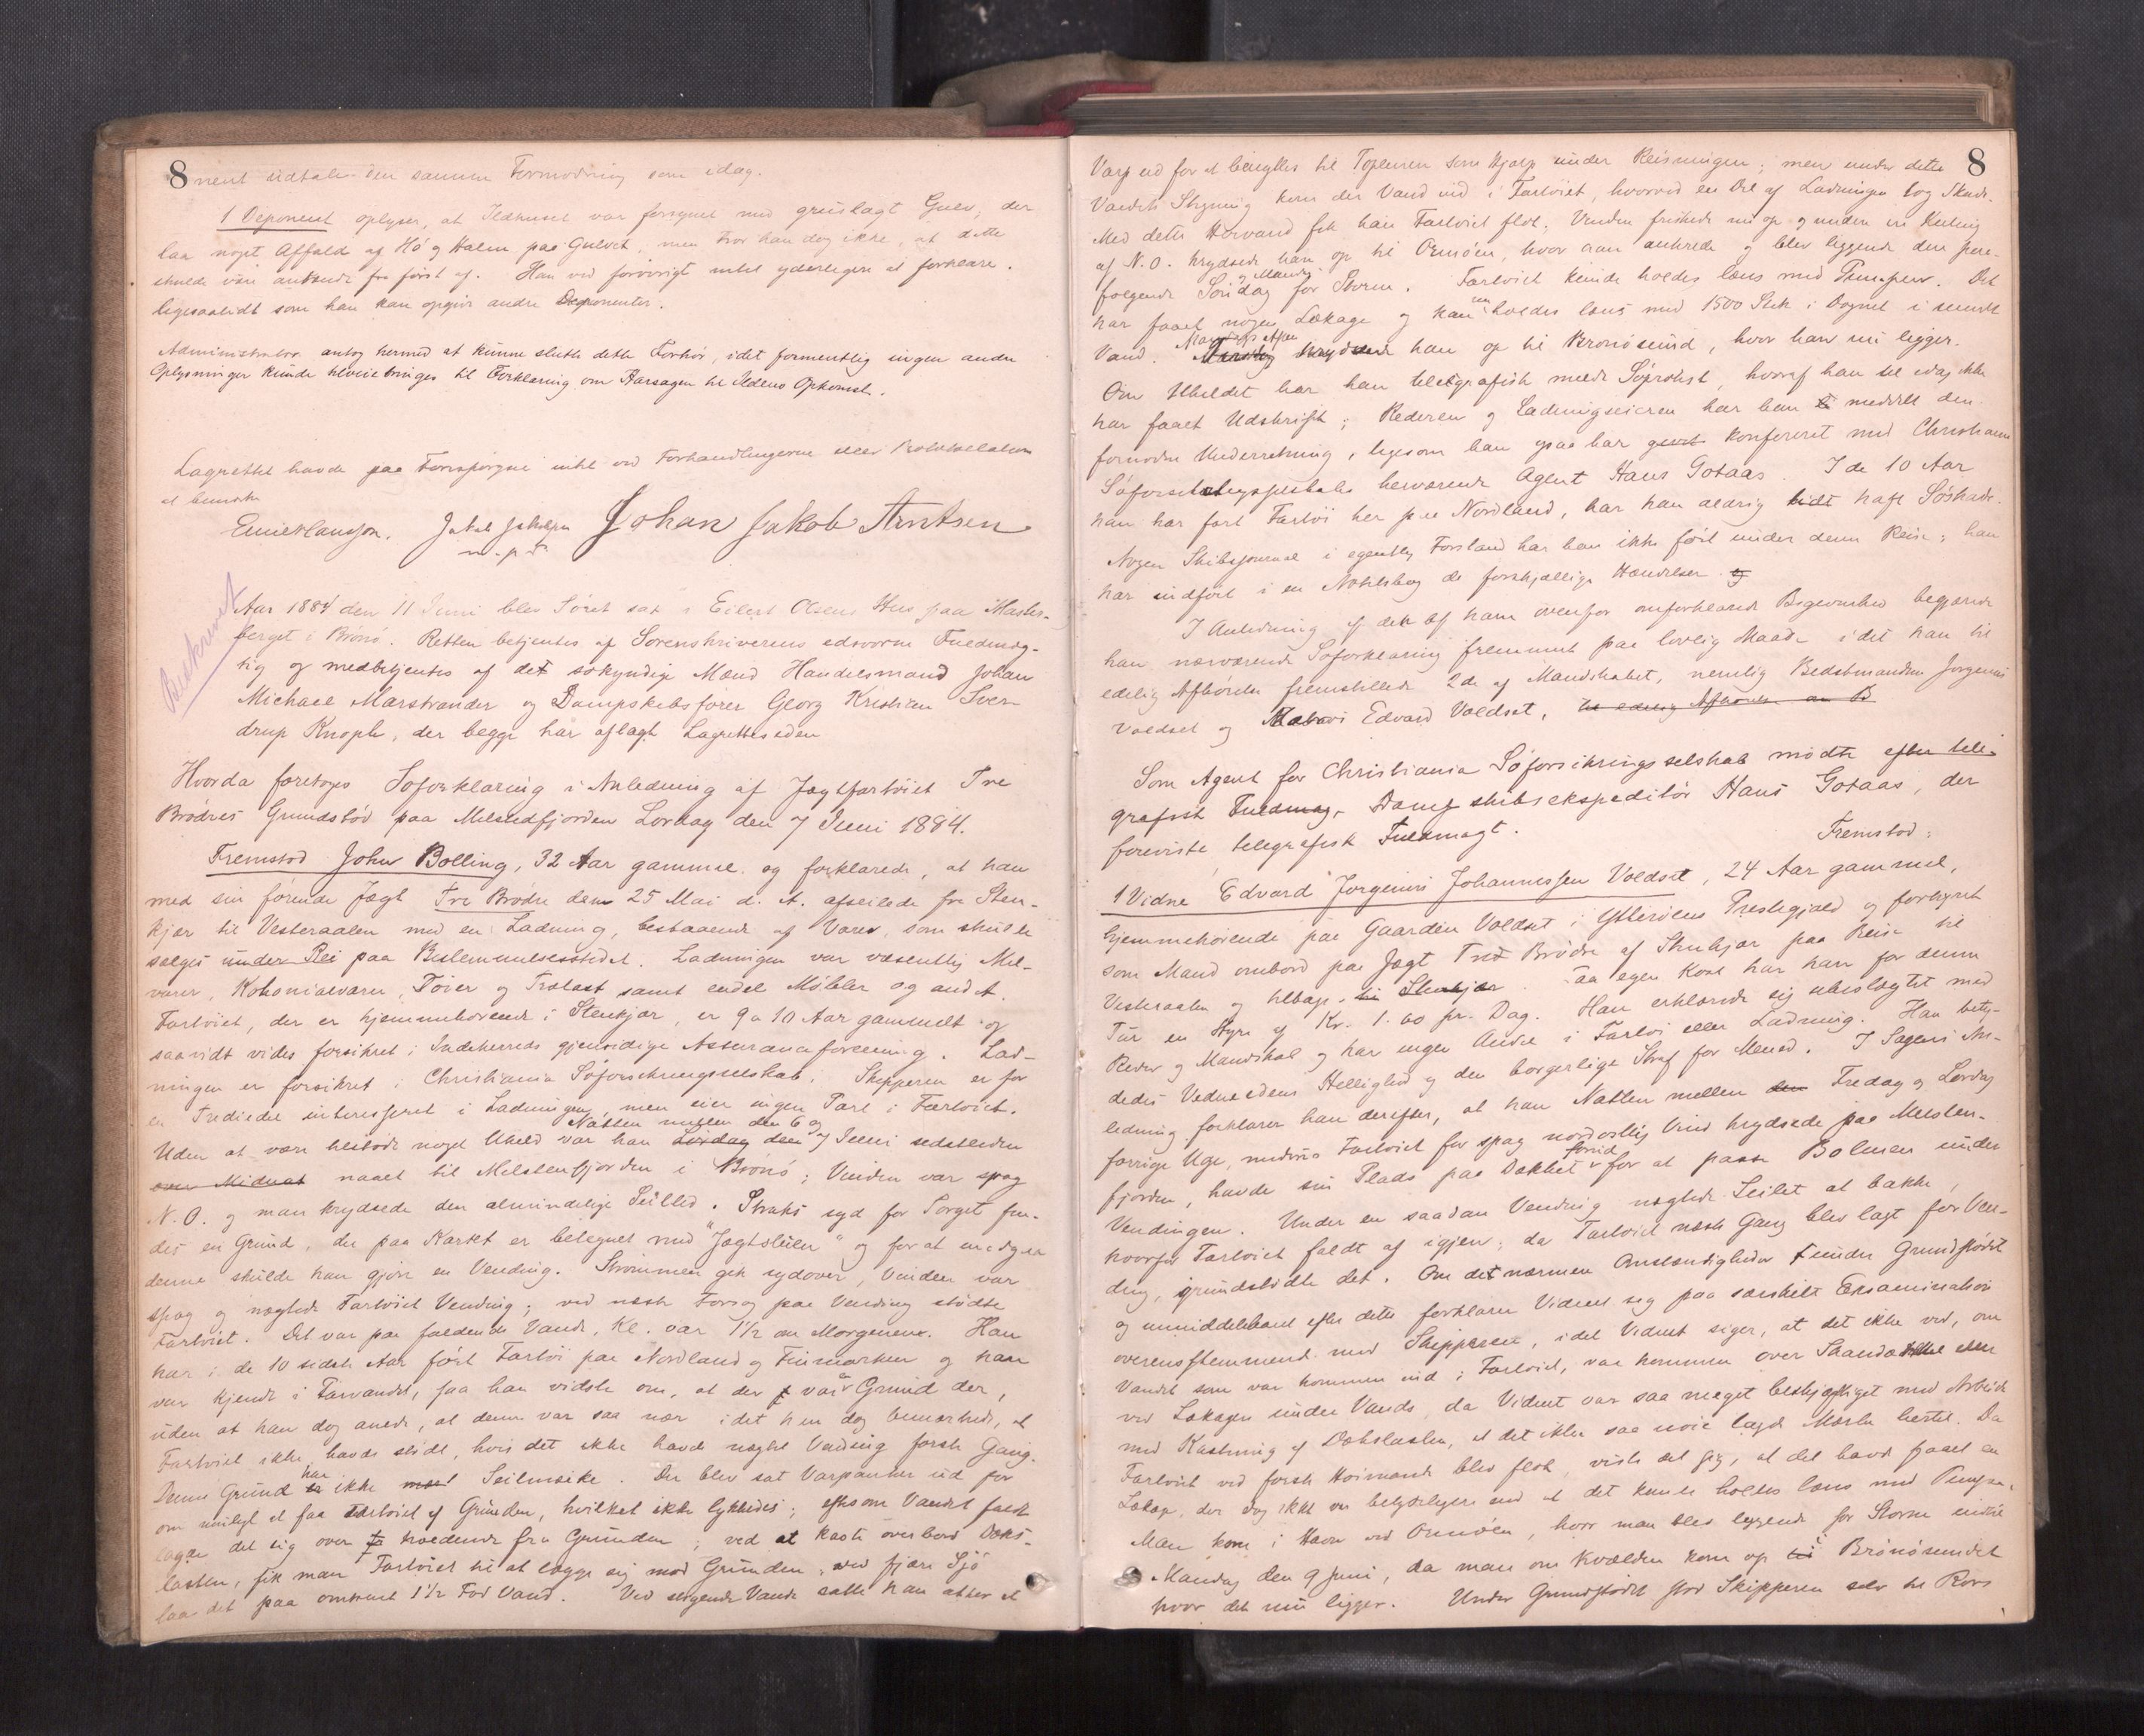 8
nent udtale den samme Formodning som idag.
1 Deponent oplyser, at Ildhuset var forsynet med gruslagt Gulv; der
laa noget Affald af Hö og Halm paa Gulvet, men tror han dog ikke, at dette
skulde være antændt fra först af. Han ved forövrigt intet yderligere at forklare.
ligesaalidt som han kan opgive andre Deponenter.
Administrator antog hermed at kunne slutte dette Forhör, idet formentlig ingen andre
Oplysninger kunde tilveiebringes til Forklaring om Aarsagen til Ildens Opkomst.
Lagrettet havde paa Forespörgsel intet ved Forhandlingerne eller Protokollationen
at bemærke
Emil Hansson. Jakob Jakobsen Johan Jakob Arntsen
m. p. P.
Beskrevet
Aar 1884 den 11 Juni blev Söret sat i Eilert Olsens Hus paa Hasles-
berget i Brönö. Retten betjentes af Sorenskriverens edsvorne Fuldmæg-
tig og medbetjentes af det sökyndige Mænd Handelsmand Johan
Michael Marstrander og Dampskibsförer Georg Kristian Sver-
drup Knoph, der begge har aflagt Lagretteseden
Hvorda foretoges Söforklaring i Anledning af Jagtfartöiet Tre
Brödres Grundstöd paa Melstenfjorden Lördag den 7 Juni 1884.
Fremstod John Bolling, 32 Aar gammel og forklarede, at han
med sin förende Jagt Tre Brödre den 25 Mai d. A. afseilede fra Sten-
kjær til Vesteraalen med en Ladning, bestaaende af Varer, som skulde
sælges under Rei paa Bestemmelsesstedet. Ladningen var væsentlig Mel-
varer, Kolonialvarer, Töier og Trælast samt endel Möbler og andet.
Fartöiet, der er hjemmehörende i Stenkjær, er 9 a 10 Aar gammelt og
saavidt vides forsikret i Indeherreds gjensidige Assuranceforening. Lad-
ningen er forsikret i Christiania Söforsikringsselskab. Skipperen er for
en Trediedel interesseret i Ladningen, men eier ingen Part i Fartöiet.
Natten mellem den 6 og
Uden at være tilstödt noget Uheld var han Lördag den 7 Juni
over Midnat naaet til Melstenfjorden i Brönö; Vinden var spag
N.O. og man krydsede den almindelige Seilled. Straks syd for Torget fin-
des en Grund, der paa Kartet er betegnet med "Jagtskulen" og for at undgaa
denne skulde han gjöre en Vending. Strömmen gik sydover, Vinden var
spag og nægtede Fartöiet Vending; ved næste Forsög paa Vending stödte
Fartöiet. Det var paa faldende Vande, Kl. var 1½ om Morgenen. Han
har i de 10 sidste Aar fört Fartöi paa Nordland og Finmarken og han
var kjendt i Farvandet, saa han vidste om, at der var Grund der,
uden at han dog anede, at denne var saa nær idet han dog bemærkede, at
Fartöiet ikke havde stödt, hvis det ikke havde nægtet Vending förste Gang.
Denne Grund har ikke Seilmærke. Der blev sat Varpanker ud for
om muligt at faa Fartöiet af Grunden, hvilket ikke lykkedes; eftersom Vandet faldt
lagde det sig over hældende fra Grunden; ved at kaste overbord Dæks-
lasten, fik man Fartöiet til at lægge sig mod Grunden, ved fjære Sjö
laa det paa omtrent 1½ Fod Vand. Ved stigende Vande satte han atter et
8
Varp ud for at benyttes til Toplenren som Hjælp under Reisningen; men under dette
Vandets Stigning kom der Vand ind i Fartöiet, hvorved en Del af Ladningen tog Skade.
Med dette Höivand fik han Fartöiet flot. Vinden friskede nu op og under en Kuling
af N.O. krydsede han op til Ormöen, hvor han ankrede og blev liggende den paa-
og Mandag
fölgende Söndag for Storm. Fartöiet kunde holdes læns med Pumpen. Det
har faaet nogen Lækage og kan nu holdes læns med 1500 Slik i Dögnet i smult
Vand. Mandags Aften krydsede han op til Brönösund, hvor han nu ligger.
Om Uheldet har han telegrafisk meldt Söprotest, hvoraf han til idag ikke
har faaet Udskrift; Rederen og Ladningseieren har han meddelt den
fornödne Underretning, ligesom han ogsaa har konfereret med Christiania
Söforsikringsselskabs herværende Agent Hans Gotaas. I de 10 Aar
han har fört Fartöi her paa Nordland, har han aldrig havt Söskade.
Nogen Skibsjournal i egentlig Forstand har han ikke fört under denne Reise; han
har indfört i en Notitsbog de forskjellige Hændelser
I Anledning af den af ham ovenfor omforklarede Begivenhed begjærede
han nærværende Söforklaring fremmet paa lovlig Maade idet han til
edelig Afhörelse fremstillede 2de af Mandskabet, nemlig Bedstmanden Jörginus
Voldset og Edvard Voldset, til edelig Afhörelse
Som Agent for Christiania Söforsikringsselskab mödte efter tele-
grafisk Fuldmag, Dampskibsekspeditör Hans Gotaas, der
foreviste telegrafisk Fuldmagt.
Fremstod:
1 Vidne Edvard Jörginus Johannessen Voldset, 24 Aar gammel,
hjemmehörende paa Gaarden Voldset i Ytteröens Præstegjæld og forhyret
som Mand ombord paa Jagt Tre Brödre af Stenkjær paa Reise til
Vesteraalen og tilbage til Stenkjær. Paa egen Kost har han for denne
Tur en Hyre af Kr. 1.60 pr. Dag. Han erklærede sig ubeslægtet med
Reder og Mandskab og har ingen Andel i Fartöi eller Ladning. Han bety-
dedes Vedneedens Hellighed og den borgerlige Straf for Mened. I Sagens An-
ledning forklarer han derefter, at han Natten mellem Fredag og Lördag
forrige Uge, medens Fartöiet for spag nordostlig Vind krydsede paa Melsten-
forud
fjorden, havde sin Plads paa Dækket for at passe Bolinen under
Vendingen. Under en saadan Vending nægtede Seilet at bakke,
hvorfor Fartöiet faldt af igjen; da Fartöiet næste Gang blev lagt for Ven-
ding, grundstödte det. Om det nærmere Omstændigheder under Grundstödet
og umiddelbart efter dette forklarer Vidnet sig paa særskilt Eksamination
overensstemmende med Skipperen, idet Vidnet siger, at det ikke ved, om
Vandet som var kommen ind i Fartöiet, var kommen over eller
ved Lækagen under Vande, da Vidnet var saa meget beskjæftiget med Arbeide
med Kastning af Dækslasten, at det ikke saa nöie lagde Mærke hertil. Da
Fartöiet ved förste Höivande blev flot, viste det sig, at det havde faaet en
Lækage, der dog ikke var betydeligere end at det kunde holdes læns med Pumpen.
Man kom i Havn ved Ormöen, hvor man blev liggende for Storm indtil
Mandag den 9 Juni, da man om Kvælden kom op i Brönösundet
hvor det nu ligger. Under Grundstödet stod Skipperen selv til Rors